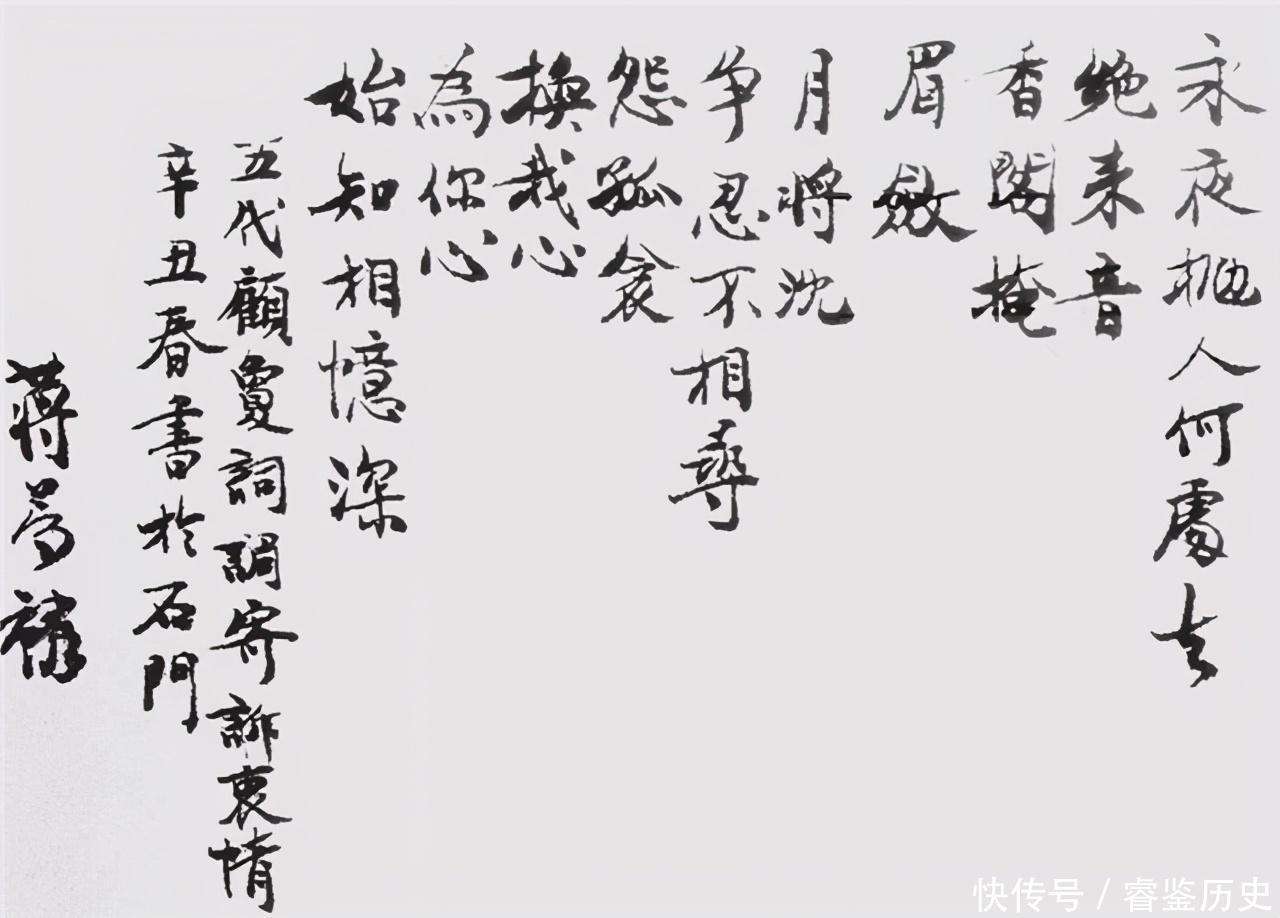 永夜抛人何處去
絶來音
香閣掩
眉斂
月將沈
争忍不相尋
怨孤衾
換我心
為你心
始知相憶深
五代顧夐詞調寄訴衷情
辛丑春書於石門
蔣
快传号 / 睿鉴历史